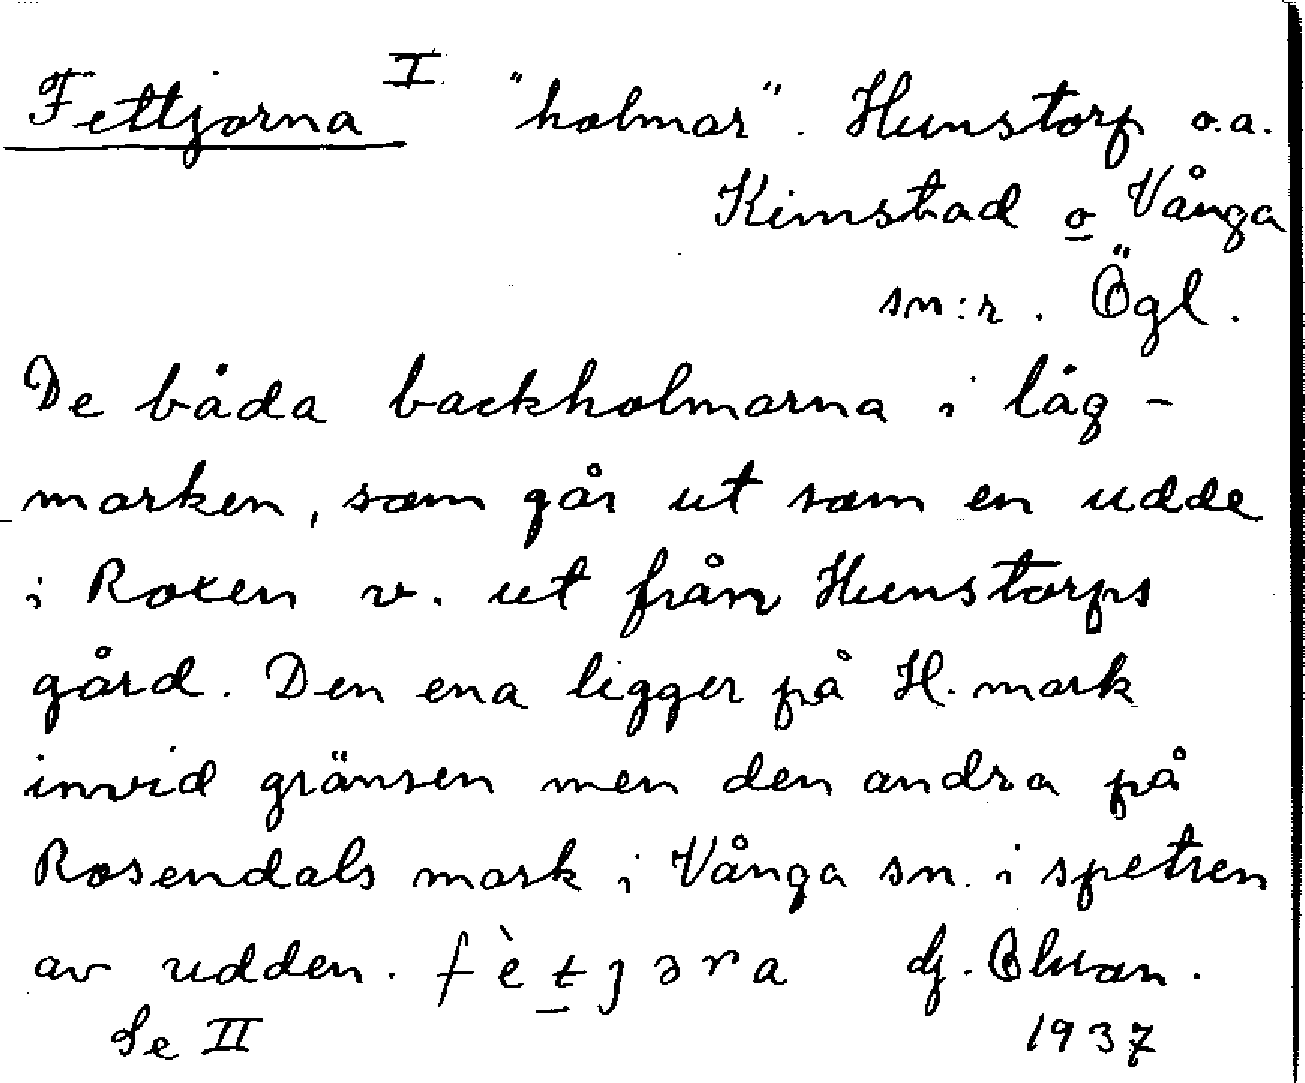 Fettjorna I "holmar". Hunstorp o.a.
Kimstad o Vånga
sn:r. Ögl.
De båda backholmarna i låg-
marken, som går ut som en udde
i Roxen v. ut från Hunstorps
gård. Den ena ligger på H. mark
invid gränsen men den andra på
Rosendals mark i Vånga sn. i spetsen
av udden. fètjɔra
Se II 1937